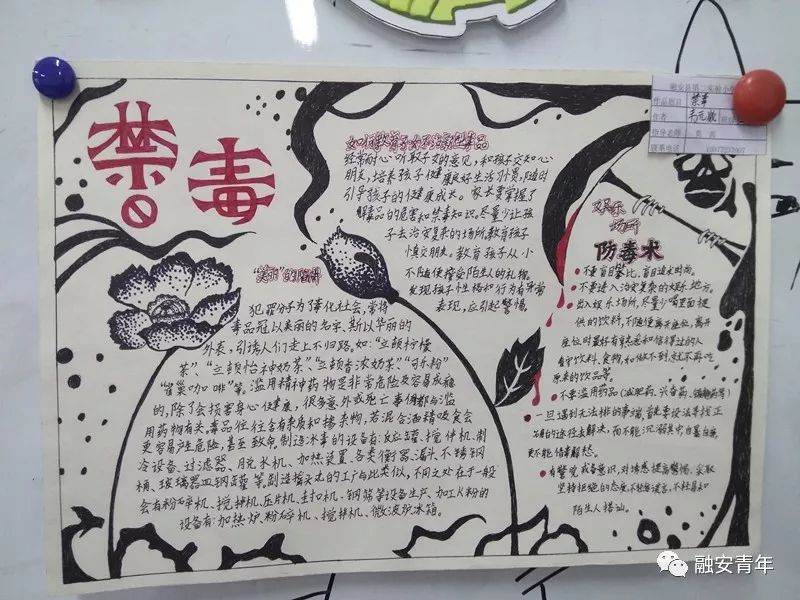 禁毒
融安县第二实验小学
作品题目 禁毒
作者 韦元敏
指导老师
联系电话
如何教育子女不沾染毒品
经常耐心听取子女的意见，和孩子交知心
朋友，培养孩子健康良好生活习惯，随时
引导孩子的健康成长。家长要掌握了
解毒品的危害和禁毒知识，尽量少让孩
子去治安复杂的场所，教育孩子
慎交朋友。教育孩子从小
不随便接受陌生人的礼物，
发现孩子性格和行为有异常
表现，应引起警惕。
的陷阱
犯罪分子为了毒化社会，常将
毒品冠以美丽的名字、斯以华丽的
外表，引诱人们走上不归路。如："立顿柠檬
茶"、"立顿怡神奶茶"、"立顿香浓奶茶"、"可乐粉"
"雀巢咖啡"等。滥用精神药物是非常危险及容易成瘾
的，除了会损害身心健康，很多意外或死亡事件都与滥
用药物有关。毒品往往含有杂质和掺杂物，若混合酒精吸食会
更容易产生危险，甚至致命。制造冰毒的设备有：反应罐、搅拌机、制
冷设备、过滤器、脱水机、加热装置、各类衡器、漏斗、不锈钢
桶、玻璃器皿、钢罐等。制造摇头丸的工厂与此类似，不同之处在于一般
会有粉碎机、搅拌机、压片机、封扣机、钢筛等设备生产、加工K粉的
设备有：加热炉、粉碎机、搅拌机、微波炉冰箱。
娱乐
场所
防毒术
不要盲目攀比，盲目追求时尚。
不要进入治安复杂的娱乐地方。
出入娱乐场所，尽量少喝里面提
供的饮料，不随便离开座位，离开
座位时最好有熟悉和信得过的人
看守饮料、食物，如做不到，就不再吃
原来的饮品等。
不要滥用药品（减肥药、兴奋药、镇静药等）
一旦遇到无法排的事端，首先要设法寻找正
当的途径去解决，而不能沉溺其中，自暴自弃，
更不能借毒解愁。
有警觉戒备意识，对诱惑提高警惕，采取
坚持拒绝的态度，不轻信谎言，不轻易和
陌生人搭讪。
融安青年